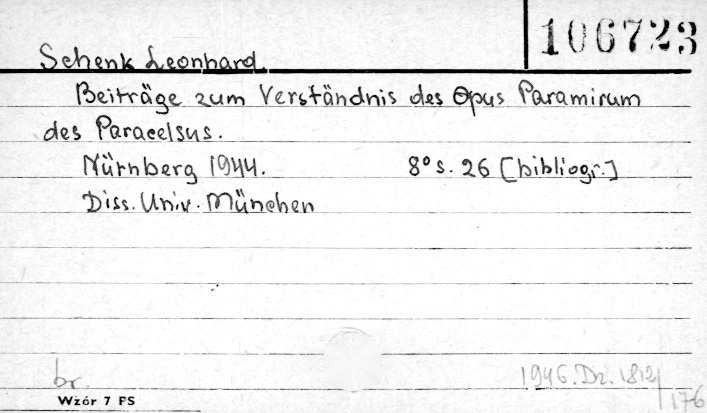 106723
Schenk Leonhard.
Beiträge zum Verständnis des Opus Paramirum
des Paracelsus.
Nürnberg 1944. 8° s. 26 [bibliogr.]
Diss. Univ. München
br.
1946. Dz. 1812/176
Wzór 7 PS